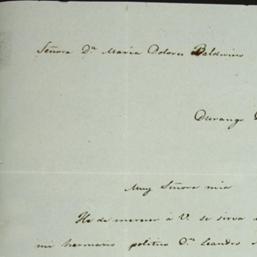 Señora Dª Maria Dolores Baldwin
Durango
Muy Señora mia
He de merecer à V. se sirva
mi hermano politico Dn Leandro